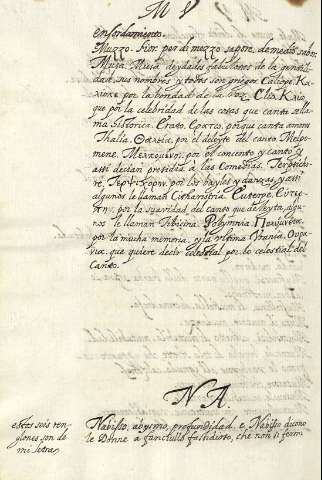 M V
ensordamiento.
Muzzo. Fior per di muzzo sapore, de medio sabor.
Musa. Musa deydades fabulosas de la gentili
dad, sus nombres y todos son griegos Caliope Κα-
λιόπε por la bondad de la boz, Clia Κλιω
que por la celebridad de las cosas que canta se lla
ma historica. Erato, Ερατω, porque canta amores
Thalia, Θαλεια, por el deleyte del canto, Melpo
mene. Μελπομενη, por el concento y canto, y
assi decian presidia a las Comedias. Terpsicho
re, Τερψιχορη, por los bayles y danzas, y assi
algunos le llaman Citharistria, Euterpia, Ευτερ
πη, por la suavidad del canto que deleyta, algu
nos le llaman Tibicina. Polymnia, Πολυμνεια
por la mucha memoria, y la ultima Urania, Ουρα
νια, que quiere decir celestial por lo celestial del
Canto.
N A.
estos seis ren
glones son de
mi letra
Nabisso, abysmo, profundidad. e, Nabisso dicono
le Donne a fanciullo fastidioso, che non si fermi